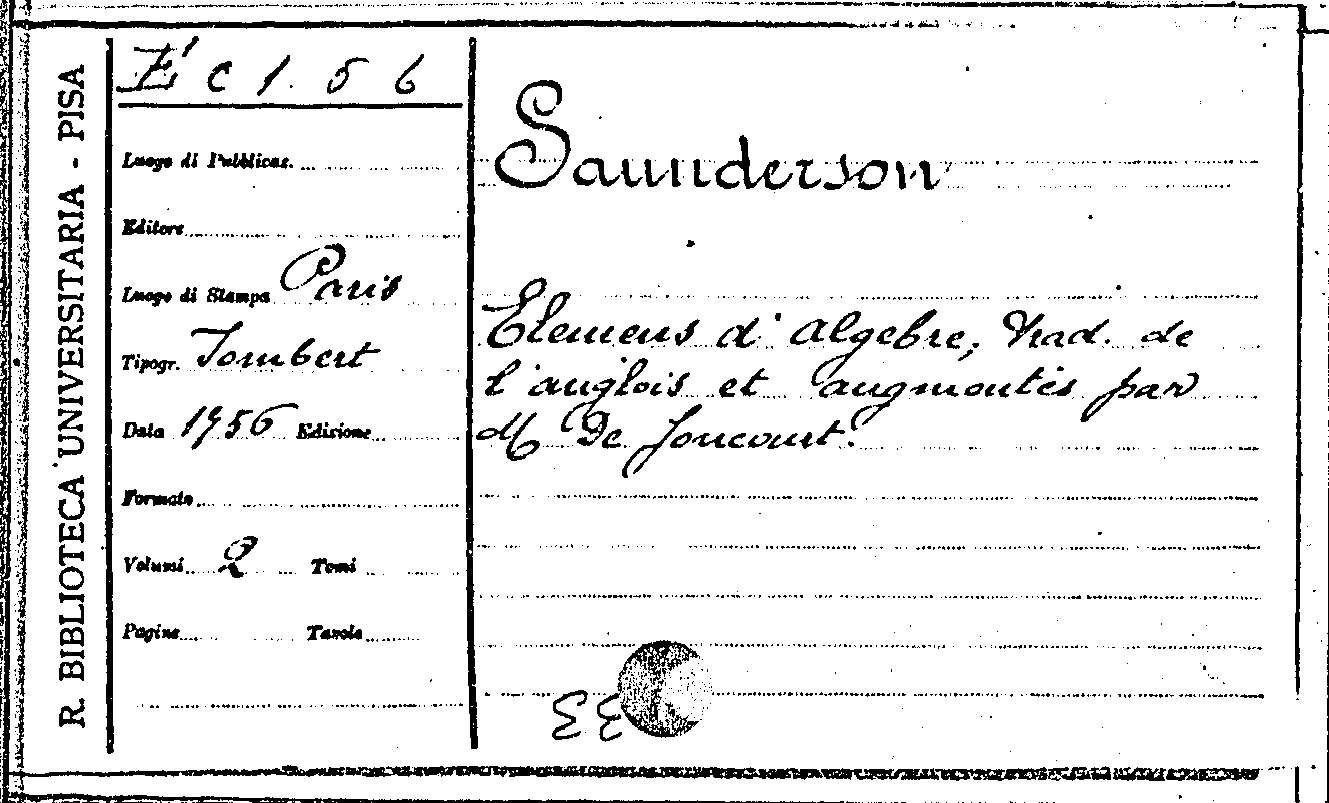 R. BIBLIOTECA UNIVERSITARIA - PISA
E c 1. 5 6
Luogo di Pubblicaz.
Editore
Luogo di Stampa Paris
Tipogr. Jombert
Data 1756 Edizione
Formato
Volumi 2 Tomi
Pagine Tavole
Saunderson
Elemens d'Algebre, trad. de
l'anglois et augmentés par
M De Joncourt.